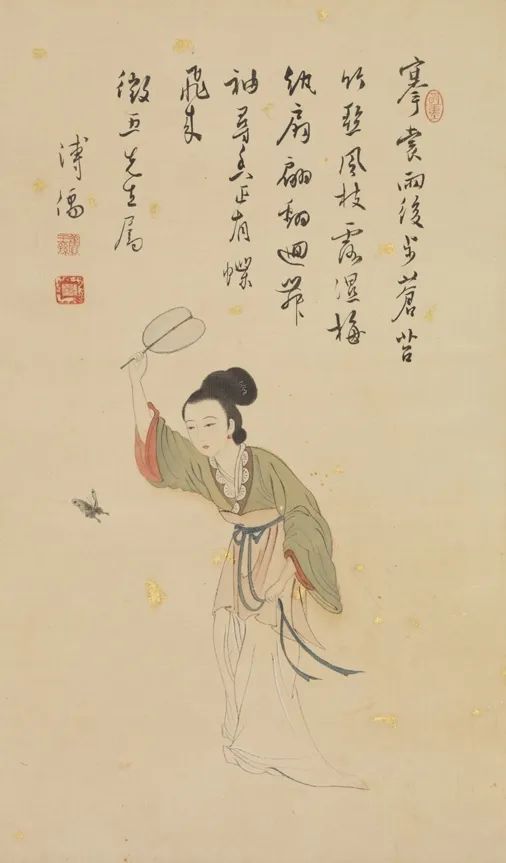 搴裳雨後步蒼苔
竹風枝露溼梅
紈扇翩翻迴舞
袖尋香正有蝶
飛來
徵五先生屬
溥儒